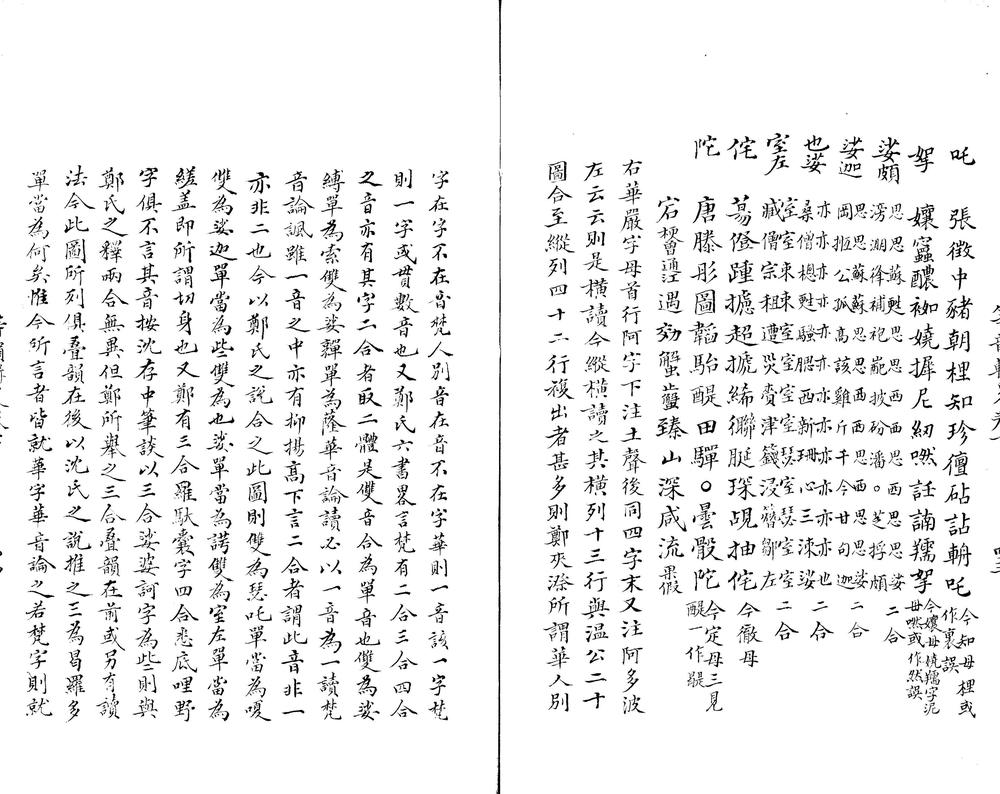 吒 張徵中豬朝梩知珍邅砧詀輈吒 今知母梩或作裏誤
拏 孃䆉醲袽嬈搱尼紉㘈誑諵羺拏 今孃母嬈羺字泥母㘈或作然誤
娑頗 思思蘇甦思思西思思西思思娑 滂漰浲補袍㟝披砏潘。芝捊頗 二合
娑迦 思思蘇蘇思思西思思西思思娑 岡揯公孤高該雞斤干今甘句迦 二合
也娑 亦亦亦亦亦亦亦亦亦亦亦亦也 桑僧樬甦騷腮西新珊心三涑娑 二合
室左 室室束束室室室瑟室瑟室室 臧僧宗租遭災賫津籛浸簪鄒左 二合
侘 募僜踵攄超搋絺聯脡琛覘抽侘 今徹母
陀 唐滕彤圖韜駘醍田驒○曇骰陀 今定母三見醍一作鞮
宕梗曾通江遇効蟹蠆臻山深咸流果假
右華嚴字母首行阿字下注土聲後同四字末又注阿多波
左云云則是橫讀今縱橫讀之其橫列十三行與温公二十
圖合至縱列四十二行複出者甚多則鄭夾漈所謂華人別
字在字不在音梵人別音在音不在字華則一音該一字梵
則一字或貫數音也又鄭氏六書畧言梵有二合三合四合
之音亦有其字二合者取二體是雙音合為單音也雙為娑
縛單為索雙為娑䫂單為薩華音論讀必以一音為一讀梵
音論諷雖一音之中亦有抑揚高下言二合者謂此音非一
亦非二也今以鄭氏之說合之此圖則雙為瑟吒單當為嗄
雙為娑迦單當為些雙為也娑單當為誇雙為室左單當為
縒盖即所謂切身也又鄭有三合羅馱囊字四合悲底哩野
字俱不言其音按沈存中筆談以三合娑婆訶字為些則與
鄭氏之釋兩合無異但鄭所舉之三合叠韻在前或另有讀
法今此圖所列俱叠韻在後以沈氏之說推之三為曷羅多
單當為何矣惟今所言者皆就華字華音論之若梵字則就